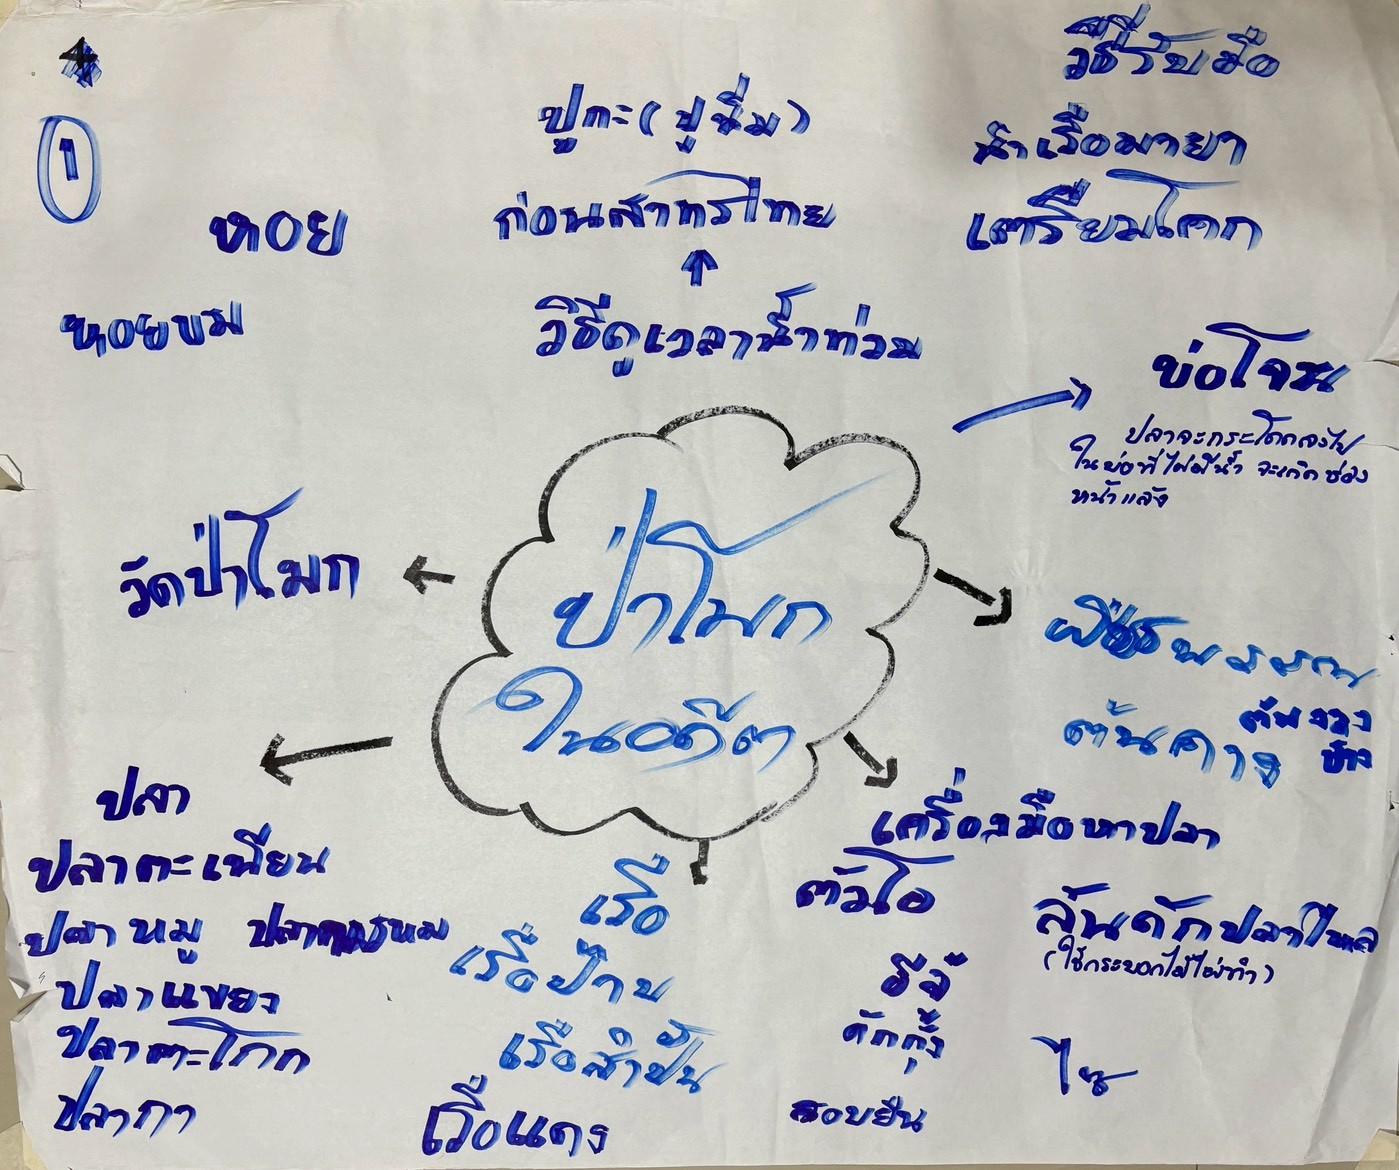 1
วิธีรับมือ
นำเรือมายา
เตรียมโคก
ปูกะ (ปูนิ่ม)
ก่อนสาทรไทย
วิธีดูเวลาน้ำท่วม
หอย
หอยขม
บ่อโจน
ปลาจะกระโดดลงไป
ในบ่อที่ไม่มีน้ำ จะเกิดช่วง
หน้าแล้ง
ป่าโมก
ในอดีต
วัดป่าโมก
พืชพรรณ
ต้นคาง
ปลา
ปลาตะเพียน
ปลาหมู
ปลาแขยง
ปลาตะโกก
ปลากา
เรือ
เรือป๊าบ
เรือสำปั้น
เรือแดง
เครื่องมือหาปลา
ตัวโอ
อีจู้
ดักกุ้ง
ลอบยืน
ลันดักปลาไหล
(ใช้กระบอกไม้ไผ่ทำ)
ไซ